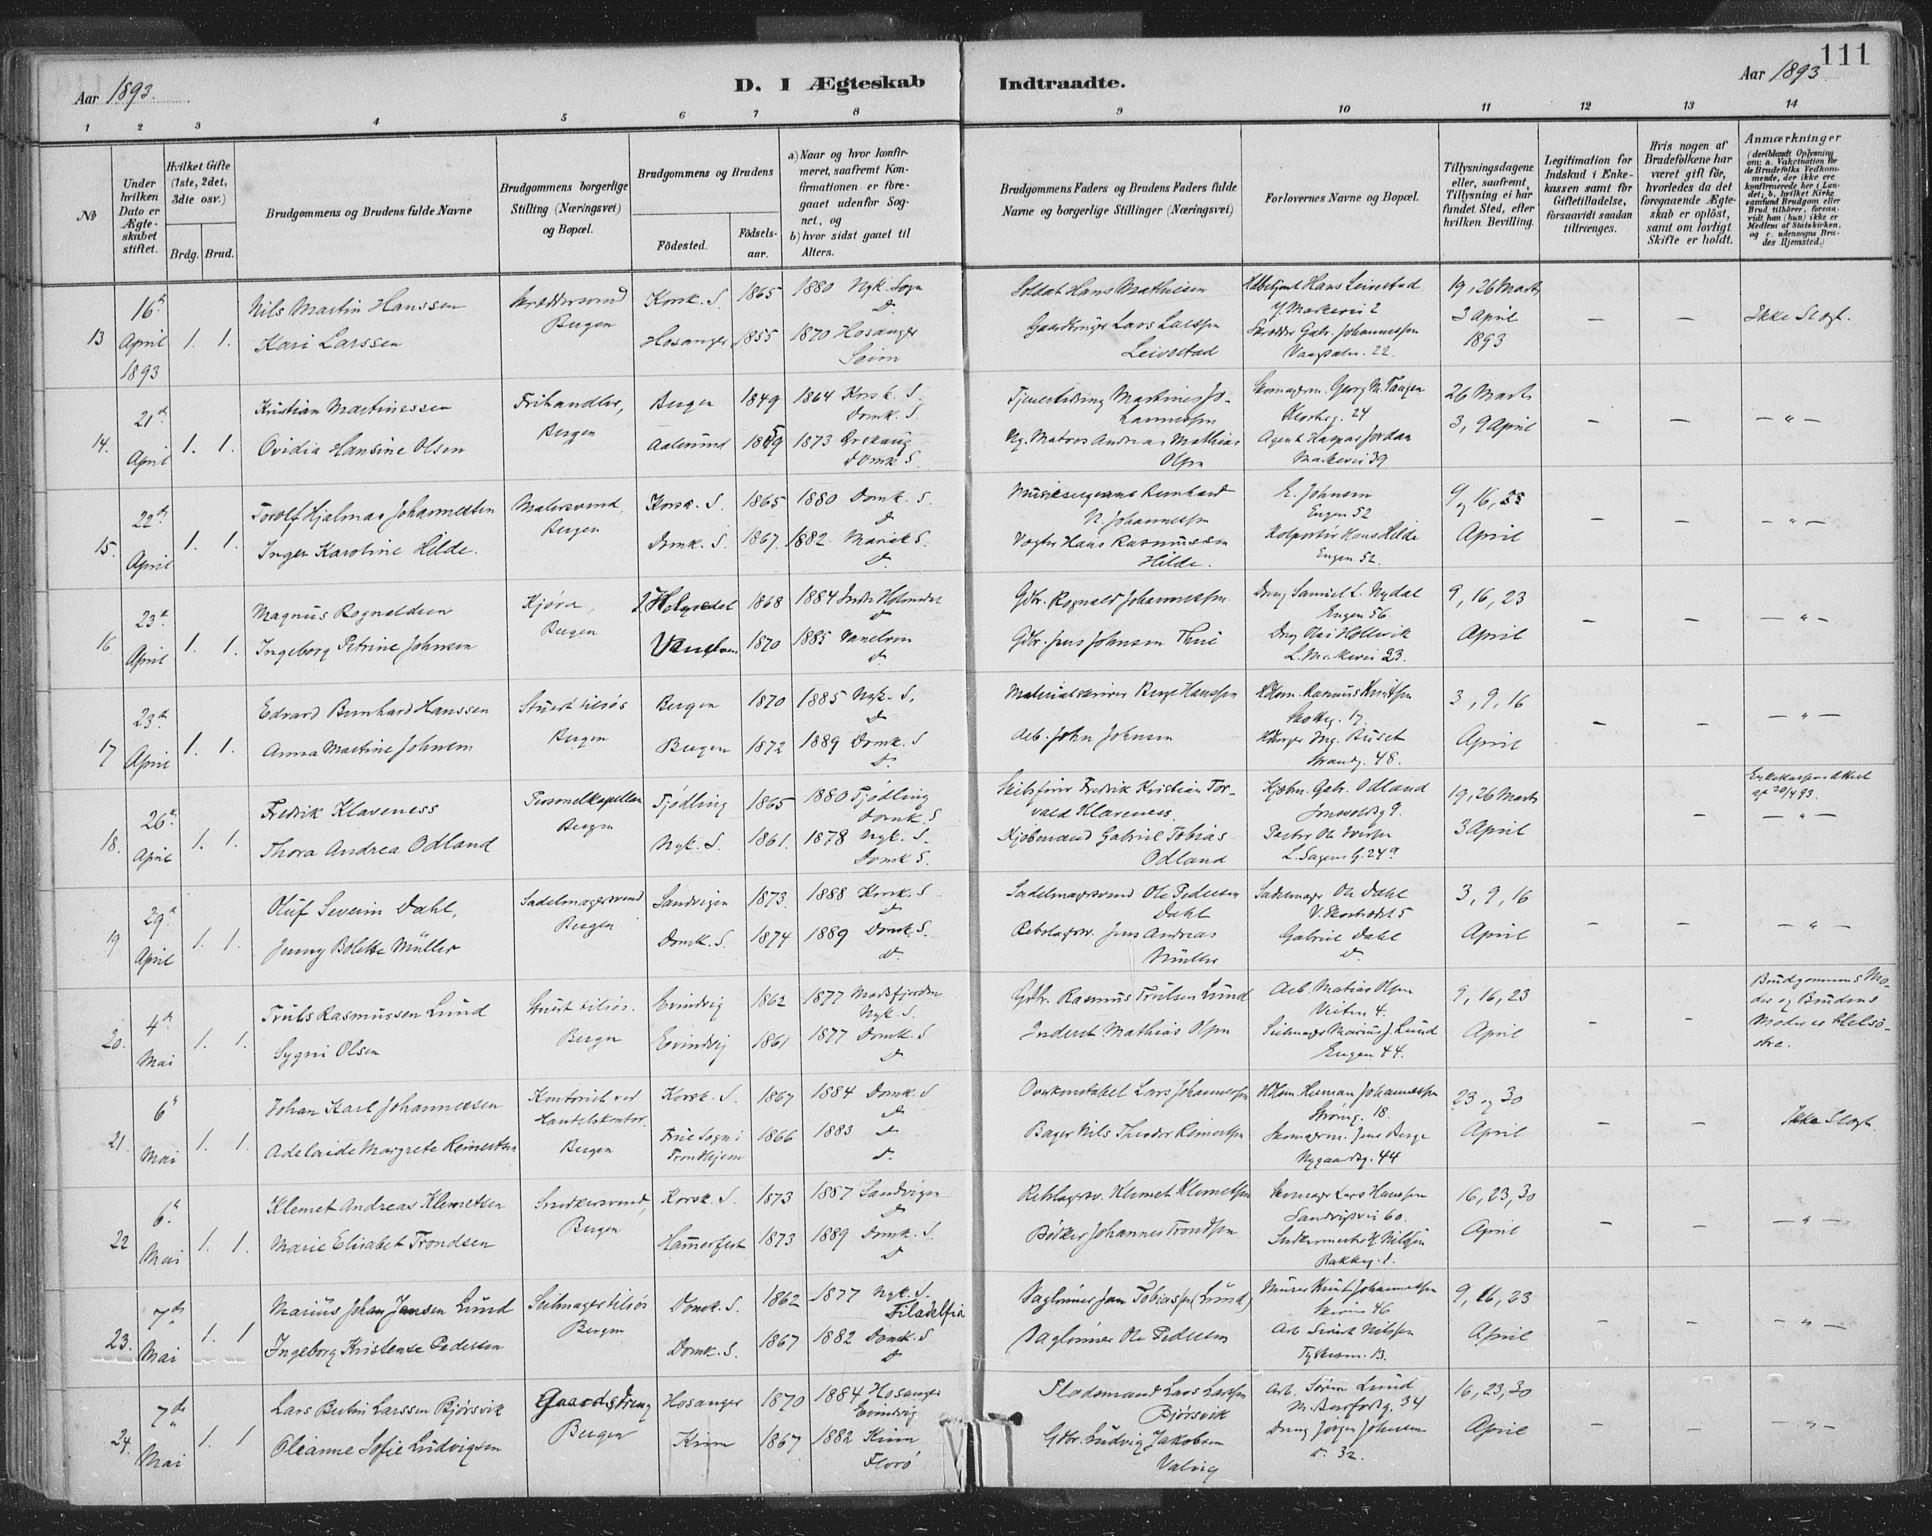 111
Aar 1893.
D. I Ægteskab
Indtraadte.
Aar 1893
1 2 3 4 5 6 7 8 9 10 11 12 13 14
No
Under hvilken Dato er Ægteskabet stiftet.
Hvilket Gifte (1ste, 2det, 3die osv.)
Brdg. Brud.
Brudgommens og Brudens fulde Navne
Brudgommens borgerlige Stilling (Næringsvei) og Bopæl.
Brudgommens og Brudens
Fødested.
Fødselsaar.
a) Naar og hvor konfirmeret, saafremt Konfirmationen er foregaaet udenfor Sognet, og
b) hvor sidst gaaet til Alters.
Brudgommens Faders og Brudens Faders fulde Navne og borgerlige Stillinger (Næringsvei)
Forlovernes Navne og Bopæl.
Tillysningsdagene eller, saafremt Tillysning ei har fundet Sted, efter hvilken Bevilling.
Legitimation for Indskud i Enkekassen samt for Giftetilladelse, forsaavidt saadan tiltrænges.
Hvis nogen af Brudefolkene har været gift før, hvorledes da det foregaaende Ægteskab er opløst, samt om lovligt Skifte er holdt.
Anmærkninger
(deriblandt Oplysning om: a. Vaccination for de Brudefolks Vedkommende, der ikke ere konfirmerede her i Landet; b. hvilket Kirkesamfund Brudgom eller Brud tilhører, forsaavidt han (hun) ikke er Medlem af Statskirken, og c. udensogns Brudes Hjemsted.)
13 16de April 1893 1. 1.
Nils Martin Hanssen Skræddersvend Bergen Korsk. S. 1865 1880 Nyk. Sogn
Kari Larssen Hosanger 1855 1870 Hosanger Seim
Soldat Hans Mathisen
Gaardbruger Lars Larssen Leivestad
Hans Leivestad Y. Markevei 2
Skrædder Gabr. Johannessen Vaagsalm. 22
19, 26 Marts 3 April 1893 – – Ikke Slægt.
14. 21de April 1. 1.
Kristian Martinessen Frihandler, Bergen Bergen 1849 1864 Korsk. S. Domk. S.
Ovidia Hansine Olsen Aalesund 1859 1873 Ørskaug Domk S.
Martines Johannessen
Andreas Mathias Olsen
Skomagerm. Georg M. Taagen 24
Agent Kaspar Jordan Markevei 39
26 Marts 3, 9 April – – – " –
15. 22de April 1. 1.
Torolf Hjalmar Johannessen Malersvend, Bergen Korsk. S. 1865 1880 Domk. S. D
Inger Karoline Hilde. Domk. S. 1867. 1882 Mariek S. D.
Musiksergeant Bernhard N. Johannessen
Vægter Hans Rasmussen Hilde.
E. Johnsen Engen 52
Kolportør Hans Hilde Engen 52.
9, 16, 23 April – – – " –
16 23de April 1. 1.
Magnus Rognaldsen Kjører, Bergen 1868 1884
Ingeborg Petrine Johnsen Vanelven 1870 1885 Vanelven D
Gdbr. Rognald Johannessen
Gdbr. Jens Johnsen
Dreng Samuel L. Nydal Engen 56
Dreng Olai Hellevik L. Markevei 23.
9, 16, 23 April – – – " –
17 23de April 1. 1.
Edvard Bernhard Hanssen Stuert tilsøs Bergen Bergen 1870 1885 Nyk. S. D
Anna Martine Johnsen Bergen 1872 1889 Domk. S D.
Materialskriver Berge Hanssen
Arb. John Johnsen
Rasmus Knutsen 17
Buset Strandg. 48.
3, 9, 16 April – – – " –
18. 26de April 1. 1.
Fredrik Klaveness Personelkapellan Bergen Tjødling 1865 1880 Tjødling Domk. S
Thora Andrea Odland Nyk. S. 1861. 1878 Nyk. S. Domk S.
Skibsfører Fredrik Kristian Torvald Klaveness
Kjøbmand Gabriel Tobias Odland
Kjøbm. Gabr. Odland 9.
Pastor Ole Iversen L. Sagens G. 24
19, 26 Marts 3 April – Enkekassens Attest af 20/4 93. – " –
19 29de April 1. 1.
Oluf Severin Dahl, Sadelmagersvend Bergen Sandvigen 1873. 1888 Korsk. S D
Jenny Bolette Müller Domk. S. 1874 1889 Domk. S. D.
Sadelmagersvend Ole Pedersen Dahl
Rebslagersv. Jens Andreas Müller
Sadelmager Ole Dahl 5
Gabriel Dahl D
3, 9, 16 April – – – " –
20. 4de Mai 1. 1.
Truls Rasmussen Lund Stuert tilsøs. Bergen Evindvig 1862 1877 Masfjorden Nyk. S.
Sygni Olsen Evindvig 1861 1877 Domk. S D
Gdbr. Rasmus Trulsen Lund
Inderst. Mathias Olsen
Arb. Matias Olsen 4.
Seilmager Marius J. Lund Engen 44.
9, 16, 23 April – – Brudgommens Moder og Brudens Moder er Helsøstre.
21. 6te Mai 1. 1.
Johan Karl Johannessen Kontorist ved Handelskontor. Bergen Korsk. S. 1867 1884 Domk. S D
Adelaide Margrete Reinertsen Frue Sogn i Trondhjem 1866 1883 D D.
Overkonstabel Lars Johannessen
Bager Nils Theodor Reinertsen
Herman Johannessen 18.
Skomagerm. Jens Berge Nygaardsg. 44
23 og 30 April – – Ikke Slægt.
22 6te Mai 1. 1.
Klemet Andreas Klemetsen Snedkersvend, Bergen Korsk. S. 1873 1887 Sandvigen D
Marie Elisabet Trondsen Hamerfest 1873 1889 Domk. S. D
Rebslagersv. Klemet Klemetsen
Bødker Johannes Trondsen
Skomager Lars Hanssen Sandvigsvei 60.
Snedkermester H. Nilssen Bakkeg. 1.
16, 23, 30 April – – – " –
23. 7de Mai 1. 1
Marius Johan Jansen Lund Seilmager tilsøs Bergen Domk. S. 1862 1877 Nyk. S. Filadelfia
Ingeborg Kristense Pedersen Domk. S. 1867 1882 Domk. S D
Dagløner Jan Tobiassen (Lund)
Dagløner Ole Pedersen
Murer Knut Johannessen 46
Arb. Sivert Nilssen 13.
9, 16, 23 April – – – " –
24. 7de Mai 1. 1
Lars Bertin Larssen Bjørsvik Gaardsdreng Bergen Hosanger 1870 1884 Hosanger Evindvig
Oleanne Sofie Ludvigsen Kinn 1867 1882 Kinn Florø
Pladsmand Lars Larssen Bjørsvik
Gdbr. Ludvig Jakobsen Valvig
Arb. Søren Lund 34
Dreng Jørgen Johnsen D. 32.
16, 23, 30 April – – "